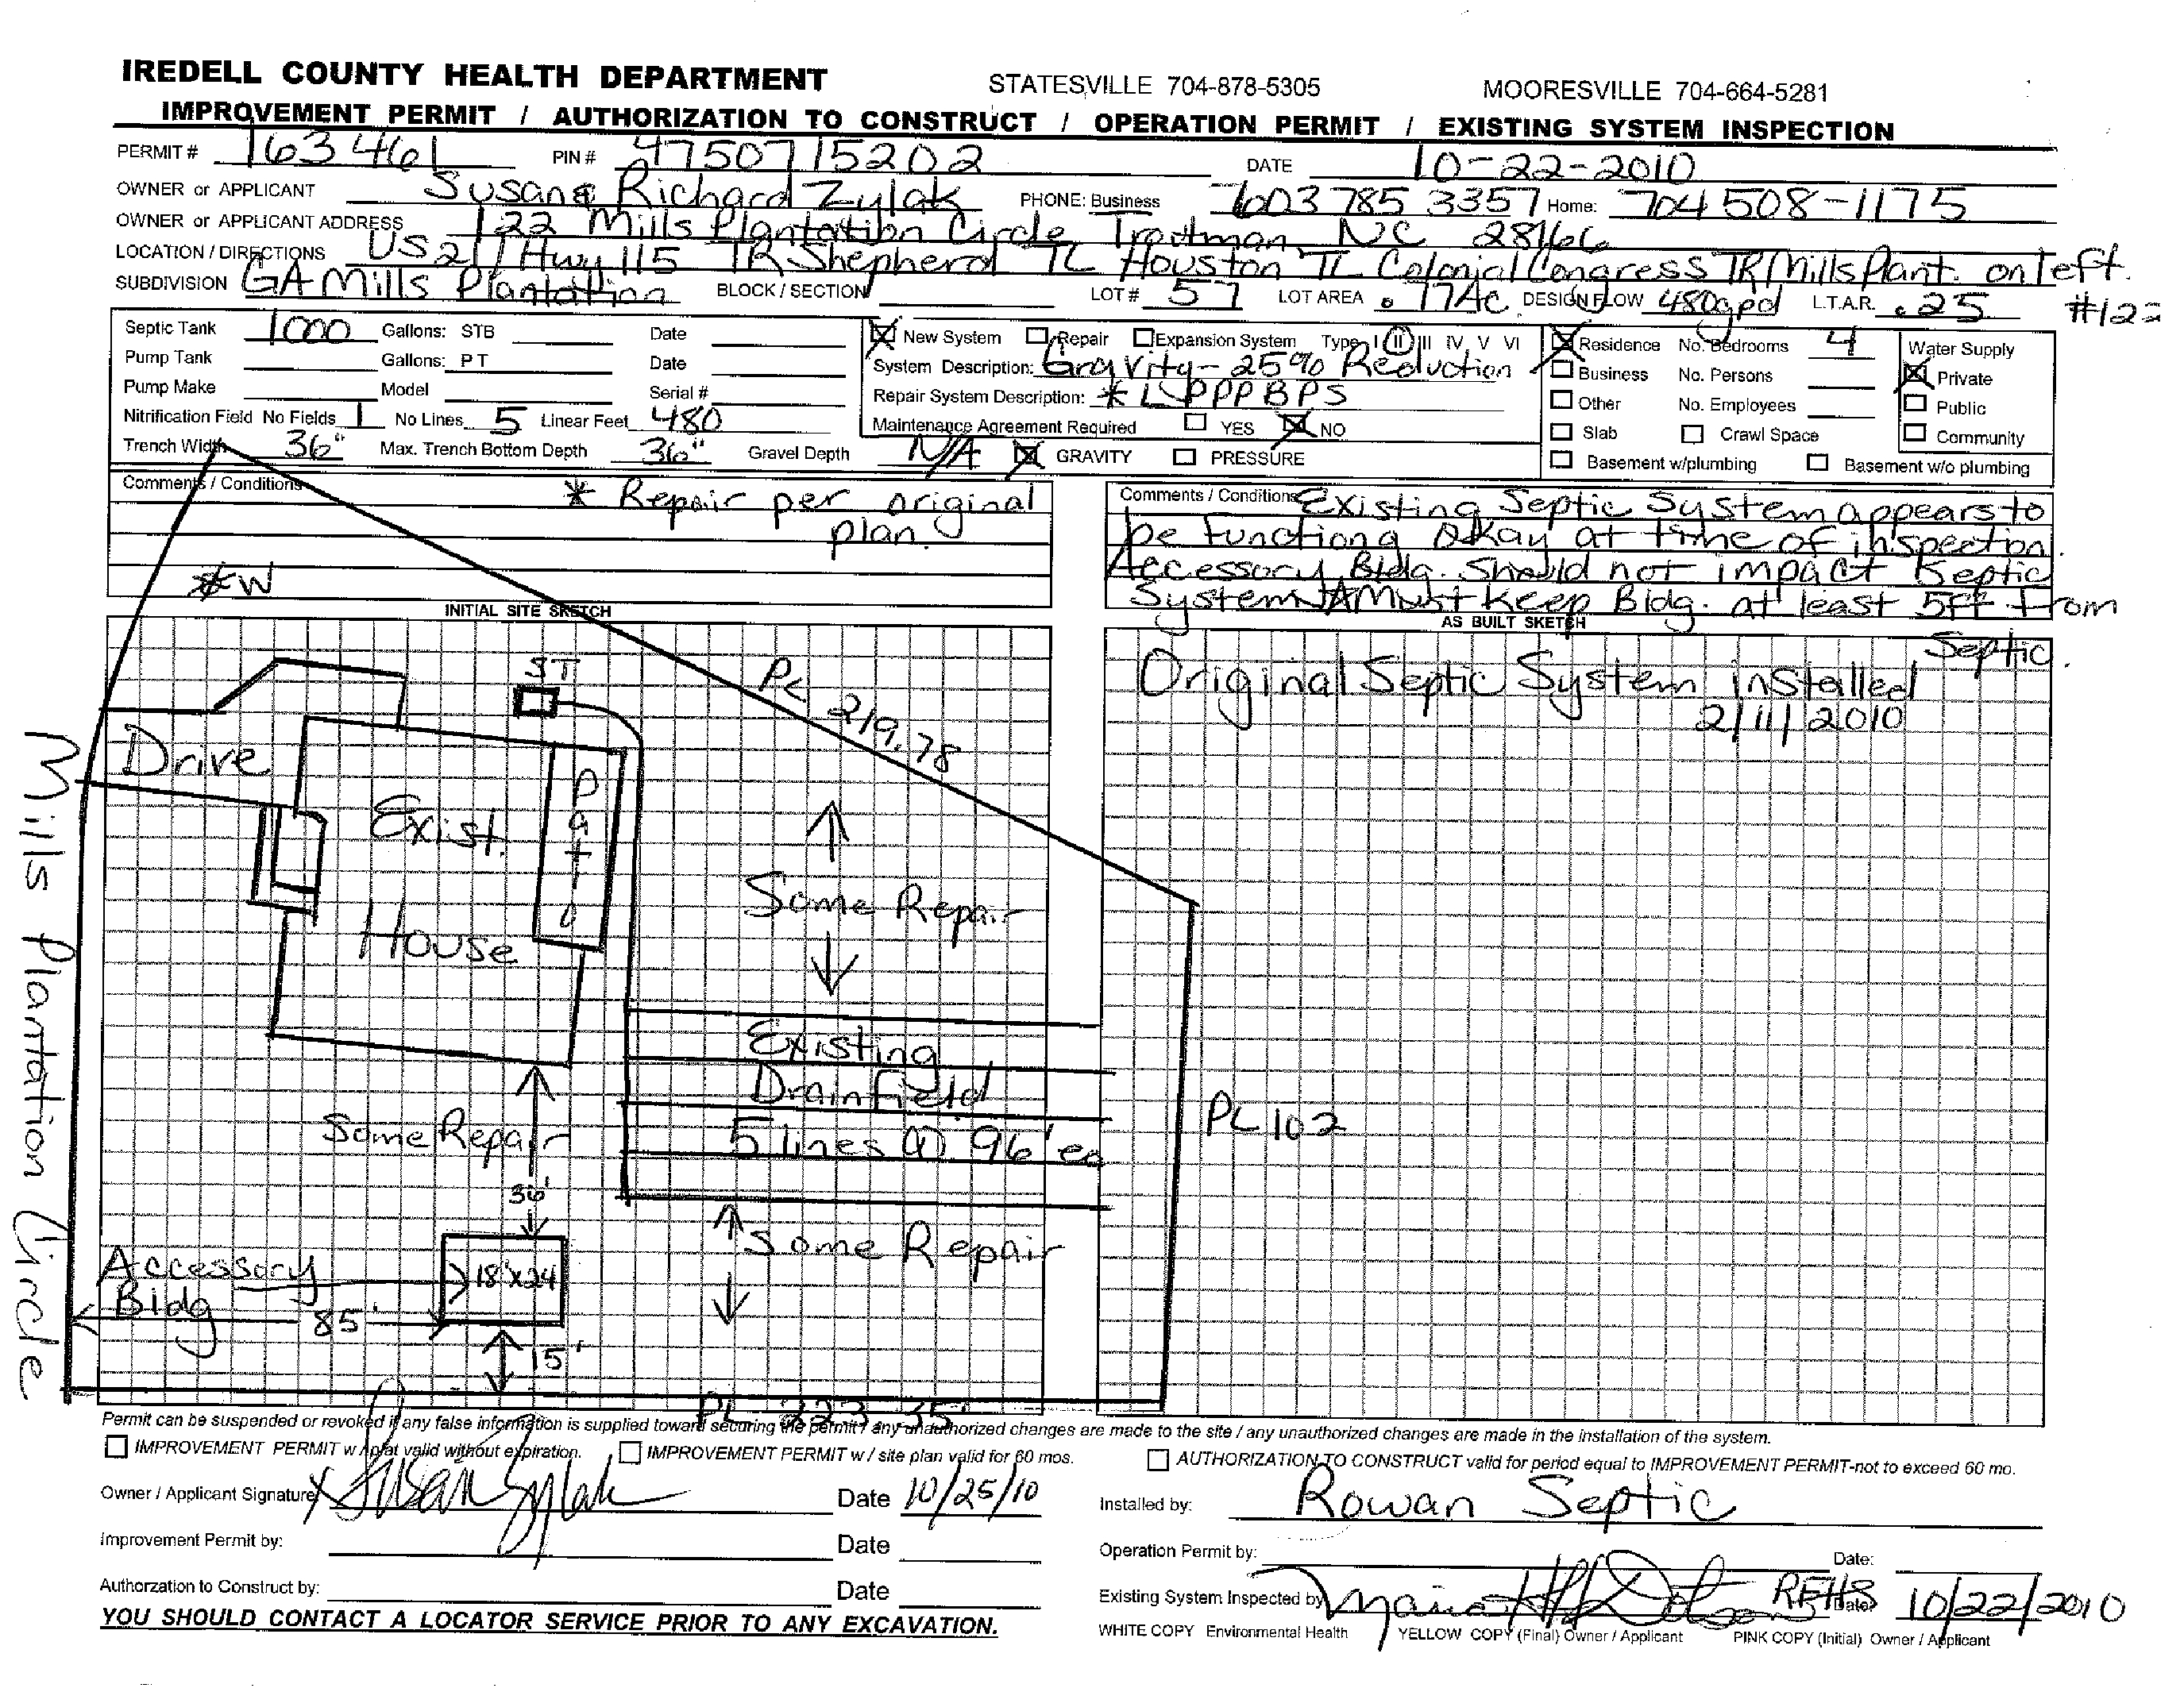 IREDELL COUNTY HEALTH DEPARTMENT STATESVILLE 704-878-5305 MOORESVILLE 704-664-5281
IMPROVEMENT PERMIT / AUTHORIZATION TO CONSTRUCT / OPERATION PERMIT / EXISTING SYSTEM INSPECTION
PERMIT # 163461 PIN # 4750715202 DATE 10-22-2010
OWNER or APPLICANT Susan & Richard Zylak PHONE: Business 603 785 3357 Home: 704 508-1175
OWNER or APPLICANT ADDRESS 122 Mills Plantation Circle Troutman, NC 28166
LOCATION / DIRECTIONS US 21 / Hwy 115 TR Shepherd TL Houston TL Colonial/Congress TR Mills Plant. on left.
SUBDIVISION GA Mills Plantation BLOCK / SECTION LOT # 57 LOT AREA .17Ac DESIGN FLOW 480gpd L.T.A.R. .25 #122
Septic Tank 1000 Gallons: STB Date
Pump Tank Gallons: P T Date
Pump Make Model Serial #
Nitrification Field No Fields 1 No Lines 5 Linear Feet 480
Trench Width 36" Max. Trench Bottom Depth 36" Gravel Depth N/A GRAVITY PRESSURE
New System Repair Expansion System Type I II III IV V VI
System Description: Gravity - 25% Reduction
Repair System Description: * LPPPBPS
Maintenance Agreement Required YES NO
Residence No. Bedrooms 4
Business No. Persons
Other No. Employees
Slab Crawl Space
Basement w/plumbing Basement w/o plumbing
Water Supply
Private
Public
Community
Comments / Conditions * Repair per original
plan.
*W
Comments / Conditions Existing Septic System appears to
be functiong okay at time of inspection.
Accessory Bldg. should not impact Septic
System * Must keep Bldg. at least 5ft from
Septic.
INITIAL SITE SKETCH
ST
PL 219.78
Drive
Exist.
House
Patio
Some Repair
Existing
Drainfield
5 lines @ 96' ea
PL 102
Some Repair
36'
Some Repair
Accessory
Bldg
18'x24
85'
15'
PL 223.35'
Mills Plantation Circle
AS BUILT SKETCH
Original Septic System installed
2/11/2010
Permit can be suspended or revoked if any false information is supplied toward securing the permit / any unauthorized changes are made to the site / any unauthorized changes are made in the installation of the system.
IMPROVEMENT PERMIT w / plat valid without expiration. IMPROVEMENT PERMIT w / site plan valid for 60 mos. AUTHORIZATION TO CONSTRUCT valid for period equal to IMPROVEMENT PERMIT-not to exceed 60 mo.
Owner / Applicant Signature X Susan Zylak Date 10/25/10
Improvement Permit by: Date
Authorzation to Construct by: Date
YOU SHOULD CONTACT A LOCATOR SERVICE PRIOR TO ANY EXCAVATION.
Installed by: Rowan Septic
Operation Permit by: Date:
Existing System Inspected by REHS Date: 10/22/2010
WHITE COPY Environmental Health YELLOW COPY (Final) Owner / Applicant PINK COPY (Initial) Owner / Applicant